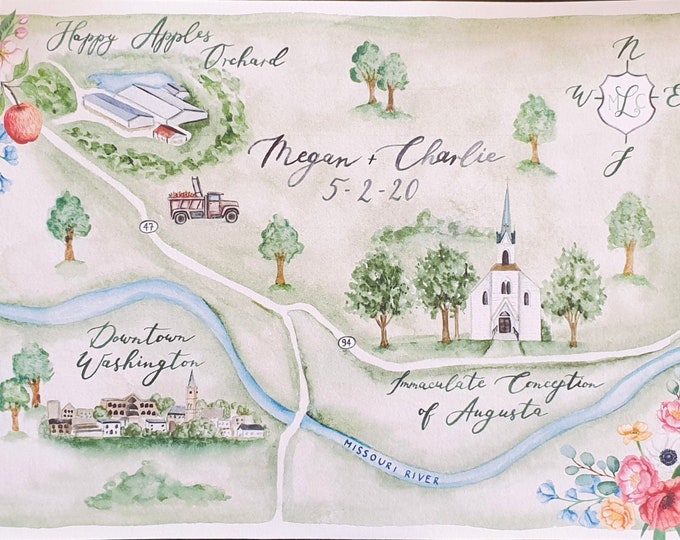 Happy Apples
Orchard
N
W
E
S
M L C
Megan + Charlie
5-2-20
47
94
Downtown
Washington
Immaculate Conception
of Augusta
MISSOURI RIVER